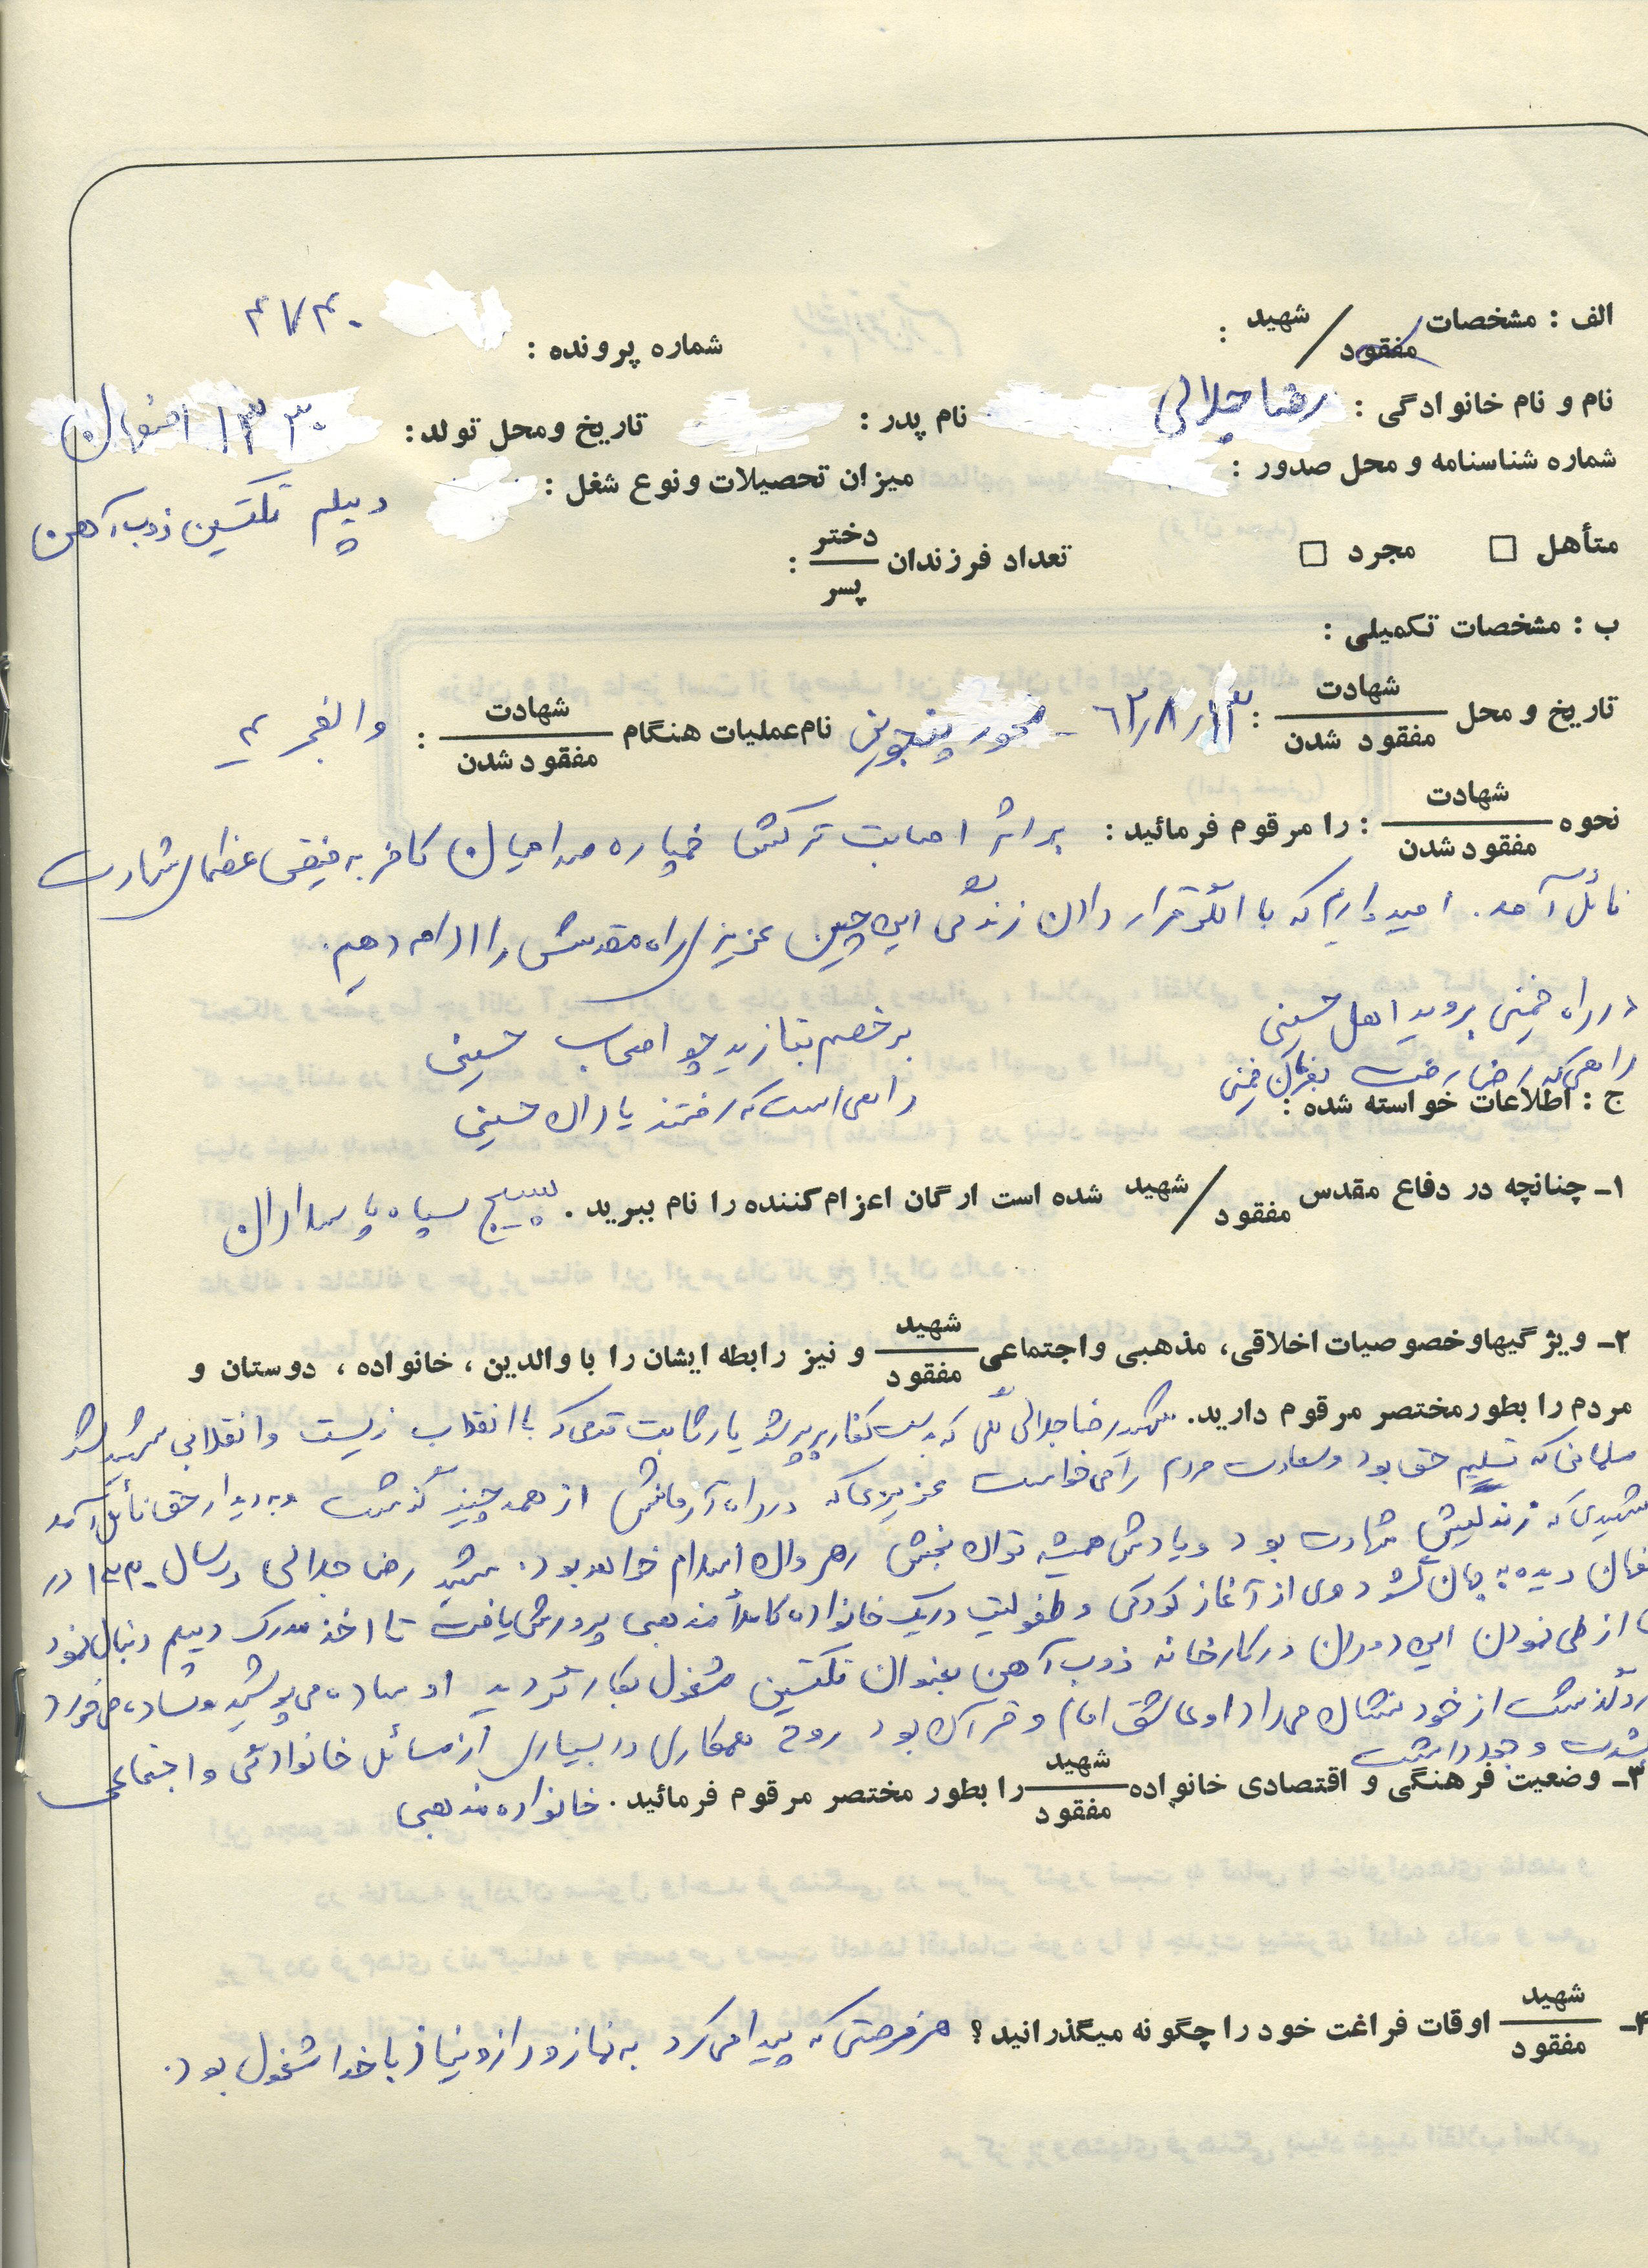 الف : مشخصات شهید / مفقود :
شماره پرونده : ۴۷۴۰
نام و نام خانوادگی : رضا جلالی نام پدر : تاریخ ومحل تولد : ۱۳۳۰ اصفهان
شماره شناسنامه و محل صدور : میزان تحصیلات ونوع شغل : دیپلم تکنسین ذوب آهن
متأهل □ مجرد □ تعداد فرزندان دختر / پسر :
ب : مشخصات تکمیلی :
تاریخ و محل شهادت / مفقود شدن : ۶۲/۸/۱۳ - محور پنجوین نام عملیات هنگام شهادت / مفقود شدن : والفجر ۴
نحوه شهادت / مفقود شدن : را مرقوم فرمائید : بر اثر اصابت ترکش خمپاره صدامیان کافر به فیض عظمای شهادت
نائل آمد . امیدواریم که با الگو قرار دادن زندگی این چنین عزیزان راه مقدسش را ادامه دهیم .
در راه خمینی بروید اهل حسینی بر خصم بتازید چو اصحاب حسینی
راهی که رضا رفت بفرمان خمینی راهی است که رفتند یاران حسینی
ج : اطلاعات خواسته شده :
۱ـ چنانچه در دفاع مقدس شهید / مفقود شده است ارگان اعزام کننده را نام ببرید . بسیج سپاه پاسداران
۲ـ ویژگیهاوخصوصیات اخلاقی، مذهبی واجتماعی شهید / مفقود و نیز رابطه ایشان را با والدین ، خانواده ، دوستان و
مردم را بطورمختصر مرقوم دارید. شهید رضا جلالی گلی که بدست کفار پرپر شد یار ثابت قدمی که با انقلاب زیست و انقلابی شهید شد
مسلمانی که تسلیم حق بود و سعادت مردم را می خواست عزیزی که در راه آرمانش از همه چیز گذشت و به دیدار حق نائل آمد
شهیدی که زندگیش شهادت بود و یادش همیشه توان بخش رهروان اسلام خواهد بود . شهید رضا جلالی در سال ۱۳۳۰ در
دیده به جهان گشود وی از آغاز کودکی و طفولیت در یک خانواده کاملاً مذهبی پرورش یافت تا اخذ مدرک دیپلم دنبال نمود
از طی نمودن این دوران در کارخانه ذوب آهن بعنوان تکنسین مشغول بکار گردید او ساده می پوشید و ساده می خورد
گذشت از خود نشان می داد او عاشق امام و قرآن بود روح همکاری در بسیاری از مسائل خانوادگی و اجتماعی
وجود داشت
۳ـ وضعیت فرهنگی و اقتصادی خانواده شهید / مفقود را بطور مختصر مرقوم فرمائید . خانواده مذهبی
۴ـ شهید / مفقود اوقات فراغت خود را چگونه میگذرانید ؟ هر فرصتی که پیدا می کرد به نماز و راز و نیاز با خدا مشغول بود .